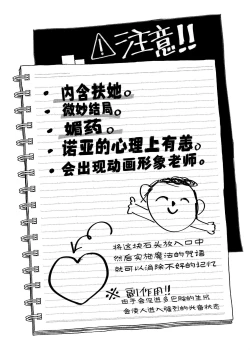 注意!!
・内含扶她。
・微妙结局。
・媚药。
・诺亚的心理上有恙。
・会出现动画形象老师。
将这块石头放入口中
然后实施魔法的咒语
就可以消除不好的记忆
※ 副作用!!
由于会促进多巴胺的生成
会使人进入强烈的兴奋状态